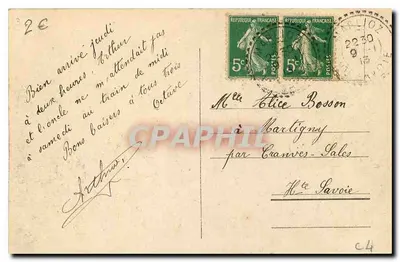 2€
Bien arrivé jeudi
à deux heures. Arthur
et l'oncle ne m'attendait pas
à samedi au train de midi
Bons baisers à tous trois
Octave
Arthur
RÉPUBLIQUE FRANÇAISE RÉPUBLIQUE FRANÇAISE
5c 5c
22 30
9 -1
13
Mlle Alice Bosson
à Martigny
par Cranves-Sales
Hte Savoie
CPARAMA.COM
C4